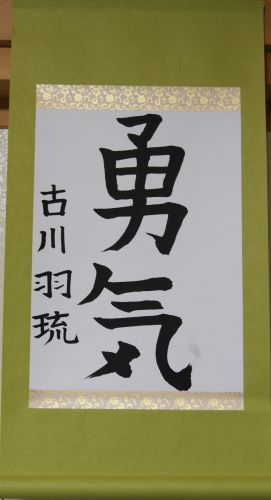 勇気
古川羽琉